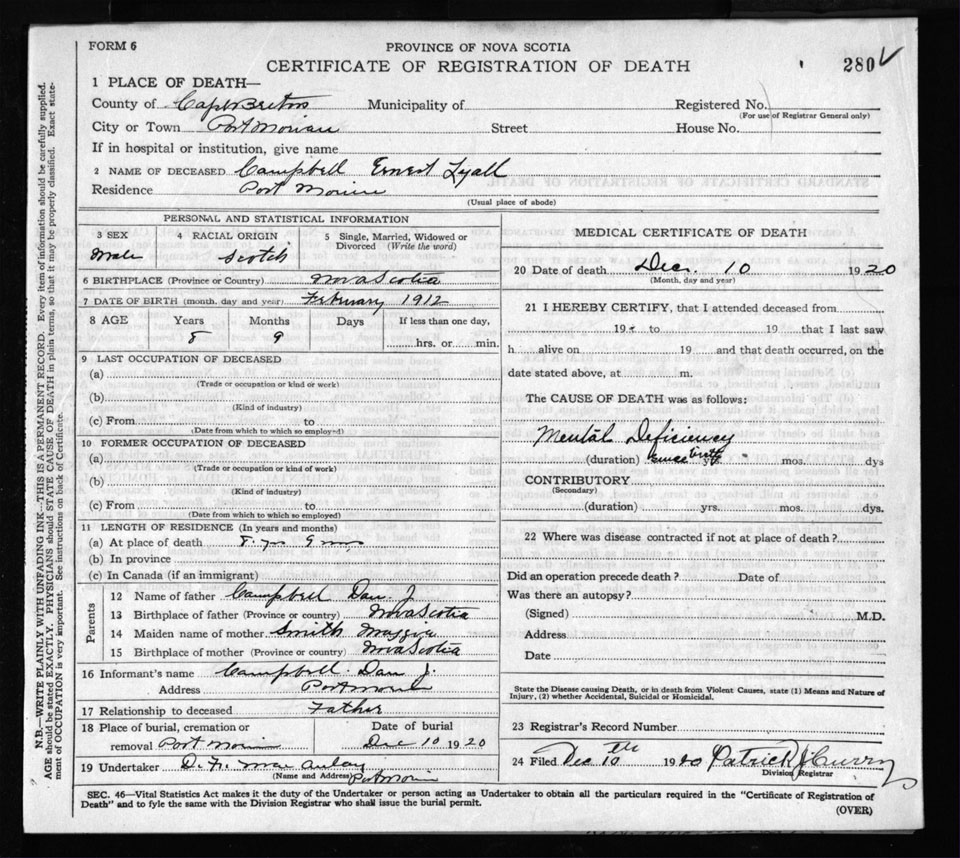 FORM 6
PROVINCE OF NOVA SCOTIA
CERTIFICATE OF REGISTRATION OF DEATH
280
1 PLACE OF DEATH—
County of Cape Breton Municipality of Registered No.
(For use of Registrar General only)
City or Town Port Morien Street House No.
If in hospital or institution, give name
2 NAME OF DECEASED Campbell Ernest Lyall
Residence Port Morien
(Usual place of abode)
PERSONAL AND STATISTICAL INFORMATION
3 SEX 4 RACIAL ORIGIN 5 Single, Married, Widowed or Divorced (Write the word)
Male Scotch
6 BIRTHPLACE (Province or Country) Nova Scotia
7 DATE OF BIRTH (month, day and year) February 1912
8 AGE Years Months Days If less than one day,
8 9 hrs. or min.
9 LAST OCCUPATION OF DECEASED
(a)
(Trade or occupation or kind of work)
(b)
(Kind of industry)
(c) From to
(Date from which to which so employed)
10 FORMER OCCUPATION OF DECEASED
(a)
(Trade or occupation or kind of work)
(b)
(Kind of industry)
(c) From to
(Date from which to which so employed)
11 LENGTH OF RESIDENCE (In years and months)
(a) At place of death 8 yrs 9 mos
(b) In province
(c) In Canada (if an immigrant)
Parents
12 Name of father Campbell Dan J.
13 Birthplace of father (Province or country) Nova Scotia
14 Maiden name of mother Smith Maggie
15 Birthplace of mother (Province or country) Nova Scotia
16 Informant's name Campbell Dan J.
Address Port Morien
17 Relationship to deceased Father
18 Place of burial, cremation or removal Port Morien
Date of burial Dec 10 1920
19 Undertaker D. N. MacAulay
(Name and Address) Port Morien
MEDICAL CERTIFICATE OF DEATH
20 Date of death Dec. 10 1920
(Month, day and year)
21 I HEREBY CERTIFY, that I attended deceased from
19 to 19 that I last saw
h alive on 19 and that death occurred, on the
date stated above, at m.
The CAUSE OF DEATH was as follows:
Mental Deficiency
(duration) since birth yrs. mos. dys
CONTRIBUTORY
(Secondary)
(duration) yrs. mos. dys.
22 Where was disease contracted if not at place of death?
Did an operation precede death? Date of
Was there an autopsy?
(Signed) M.D.
Address
Date
State the Disease causing Death, or in death from Violent Causes, state (1) Means and Nature of
Injury, (2) whether Accidental, Suicidal or Homicidal.
23 Registrar's Record Number
24 Filed Dec 10th 1920 Patrick J Curry
Division Registrar
SEC. 46—Vital Statistics Act makes it the duty of the Undertaker or person acting as Undertaker to obtain all the particulars required in the "Certificate of Registration of
Death" and to fyle the same with the Division Registrar who shall issue the burial permit.
(OVER)
N.B.—WRITE PLAINLY WITH UNFADING INK—THIS IS A PERMANENT RECORD. Every item of information should be carefully supplied.
AGE should be stated EXACTLY. PHYSICIANS should STATE CAUSE OF DEATH in plain terms, so that it may be properly classified. Exact state-
ment of OCCUPATION is very important. See instructions on back of Certificate.